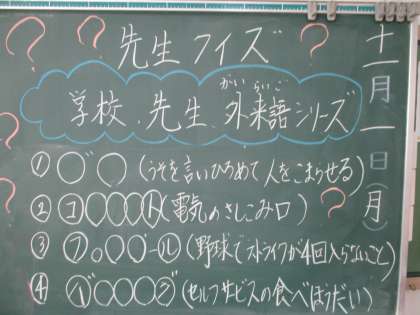 十一月一日(月)
先生クイズ
学校、先生、外来語シリーズ
がいらいご
① ○゛○ (うそを言いひろめて人をこまらせる)
② コ○○○ト (電気のさしこみ口)
③ フ○○○ール (野球でストライクが4回入らないこと)
④ バ○○○グ (セルフサービスの食べほうだい)